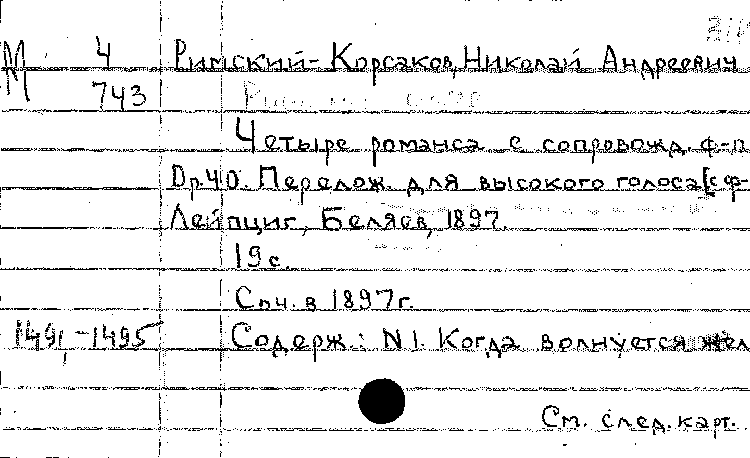 М 4 Римский-Корсаков, Николай Андреевич
743
Четыре романса с сопровожд. ф-п
Op.40. Перелож. для высокого голоса [с ф-
Лейпциг, Беляев, 1897.
19 с.
Соч. в 1897 г.
1491,-1495 Содерж.: N 1. Когда волнуется жел
См. след. карт.